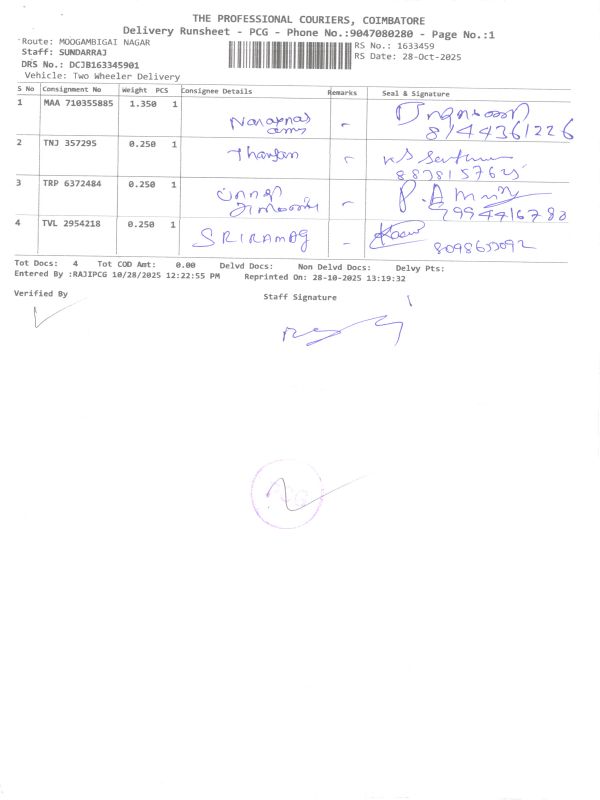 THE PROFESSIONAL COURIERS, COIMBATORE
Delivery Runsheet - PCG - Phone No.:9047080280 - Page No.:1
Route: MOOGAMBIGAI NAGAR
RS No.: 1633459
Staff: SUNDARRAJ
RS Date: 28-Oct-2025
DRS No.: DCJB163345901
Vehicle: Two Wheeler Delivery
S No Consignment No Weight PCS Consignee Details Remarks Seal & Signature
1 MAA 710355885 1.350 1
8144361226
2 TNJ 357295 0.250 1
3 TRP 6372484 0.250 1
4 TVL 2954218 0.250 1 SRIRAM
Tot Docs: 4 Tot COD Amt: 0.00 Delvd Docs: Non Delvd Docs: Delvy Pts:
Entered By :RAJIPCG 10/28/2025 12:22:55 PM Reprinted On: 28-10-2025 13:19:32
Verified By
Staff Signature